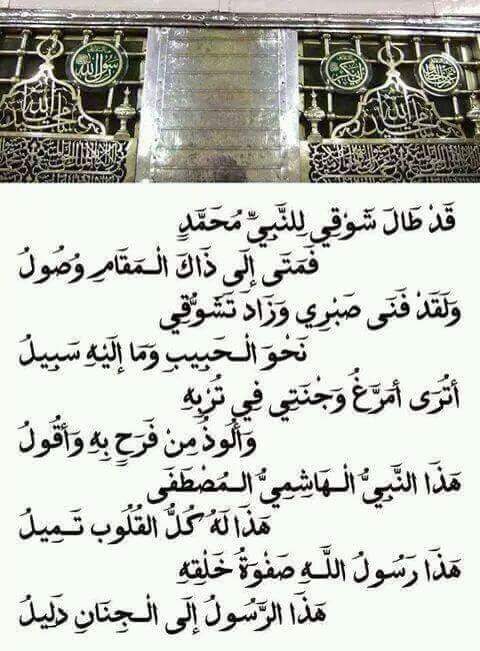 رسول الله
قَدْ طَالَ شَوْقِي لِلنَّبِيِّ مُحَمَّدٍ
فَمَتَى إِلَى ذَاكَ الْمَقَامِ وُصُولُ
وَلَقَدْ فَنَى صَبْرِي وَزَادَ تَشَوُّقِي
نَحْوَ الْحَبِيبِ وَمَا إِلَيْهِ سَبِيلُ
أَتُرَى أُمَرِّغُ وَجْنَتِي فِي تُرْبِهِ
وَأَلُوذُ مِنْ فَرَحٍ بِهِ وَأَقُولُ
هَذَا النَّبِيُّ الْهَاشِمِيُّ الْمُصْطَفَى
هَذَا لَهُ كُلُّ القُلُوبِ تَمِيلُ
هَذَا رَسُولُ اللَّهِ صَفْوَةُ خَلْقِهِ
هَذَا الرَّسُولُ إِلَى الْجِنَانِ دَلِيلُ